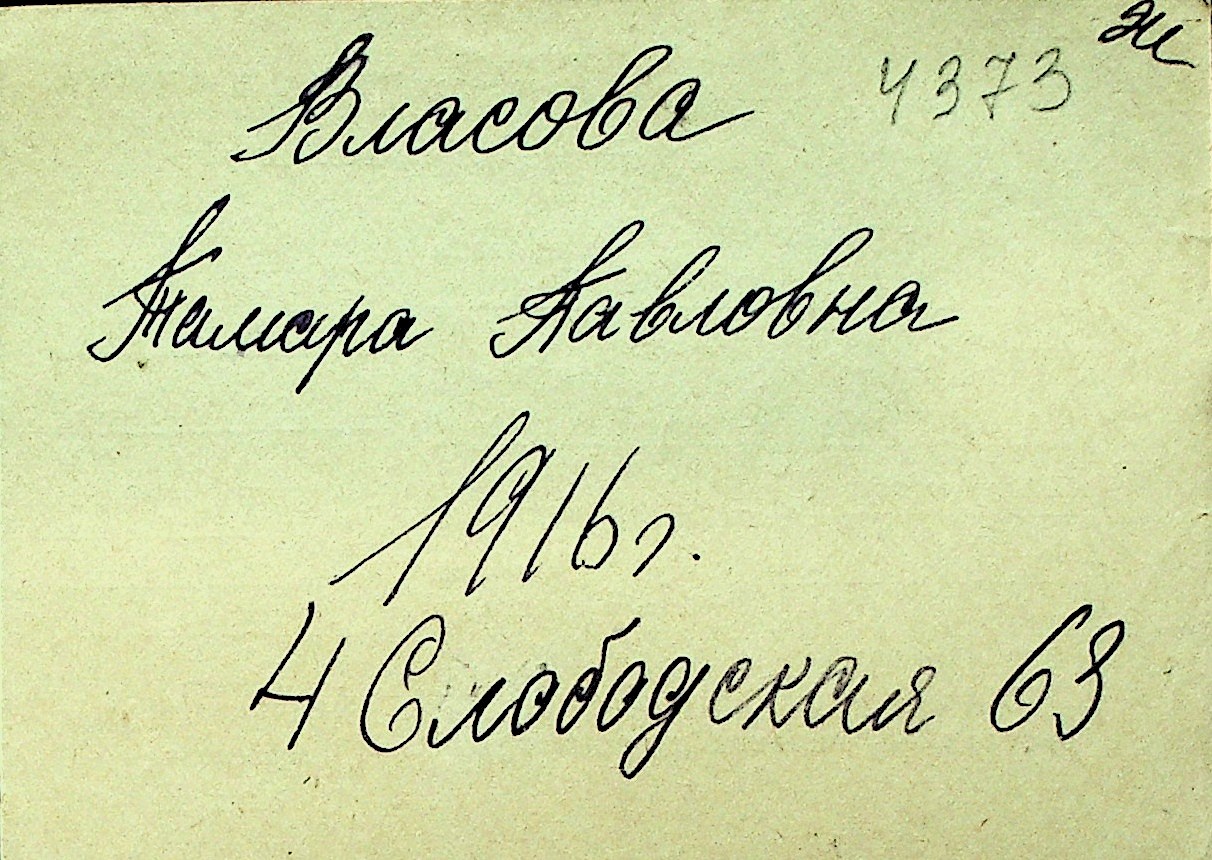 Власова 4373 ж
Тамара Павловна
1916 г.
4 Слободская 63